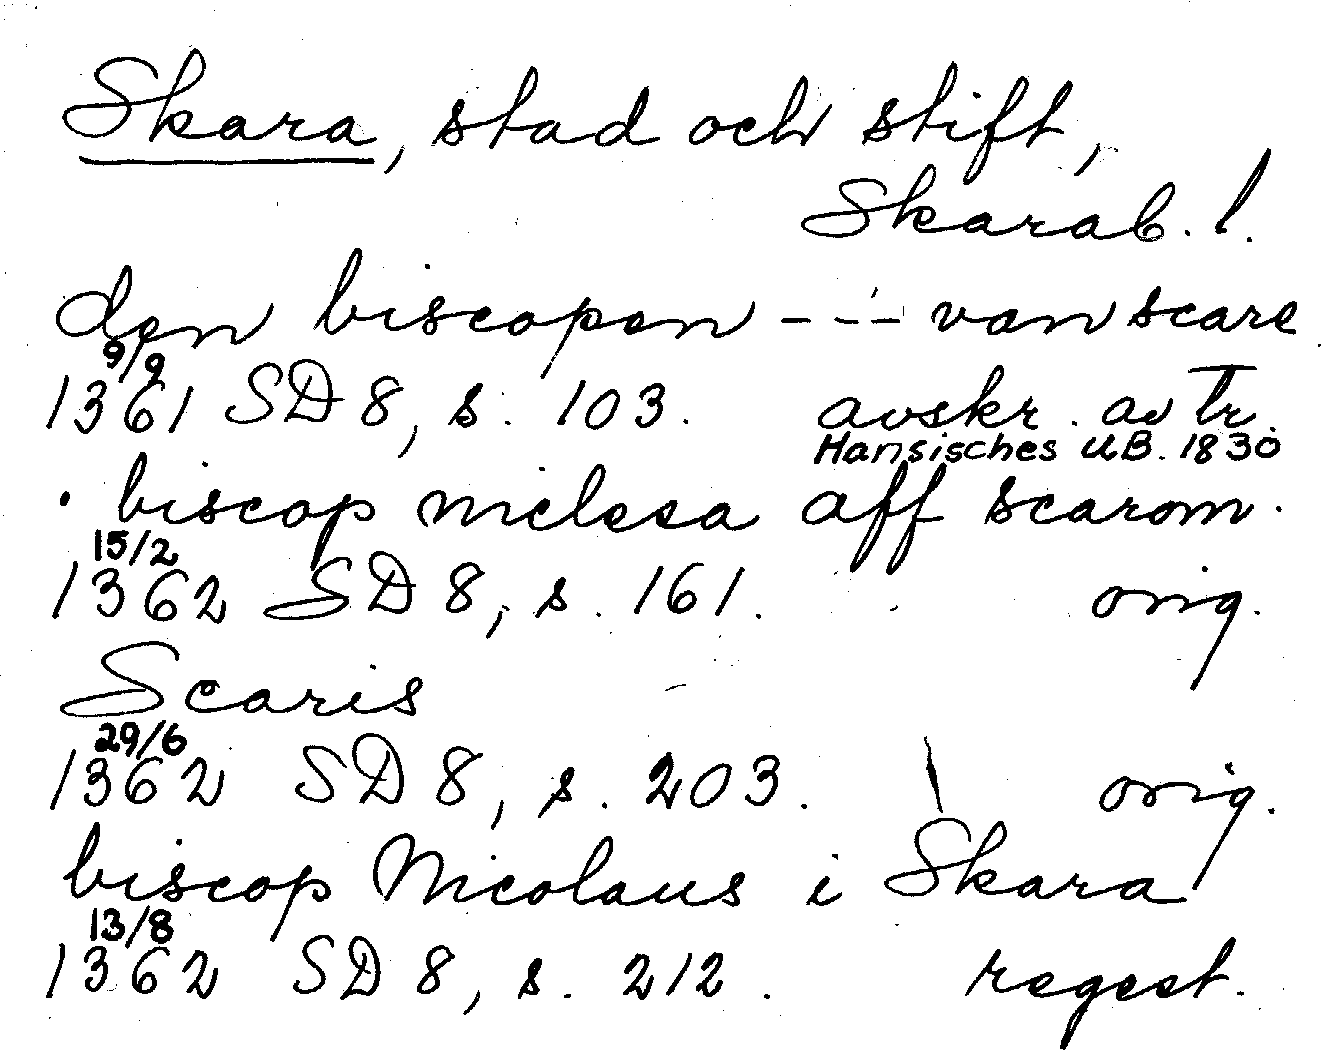 Skara, stad och stift,
Skarab. l.
den biscopen --- van scare
9/9
1361 SD 8, s. 103. avskr. av tr.
Hansisches UB. 1830
biscop niclesa aff scarom.
15/2
1362 SD 8, s. 161. orig.
Scaris
29/6
1362 SD 8, s. 203. orig.
biscop Nicolaus i Skara
13/8
1362 SD 8, s. 212. regest.